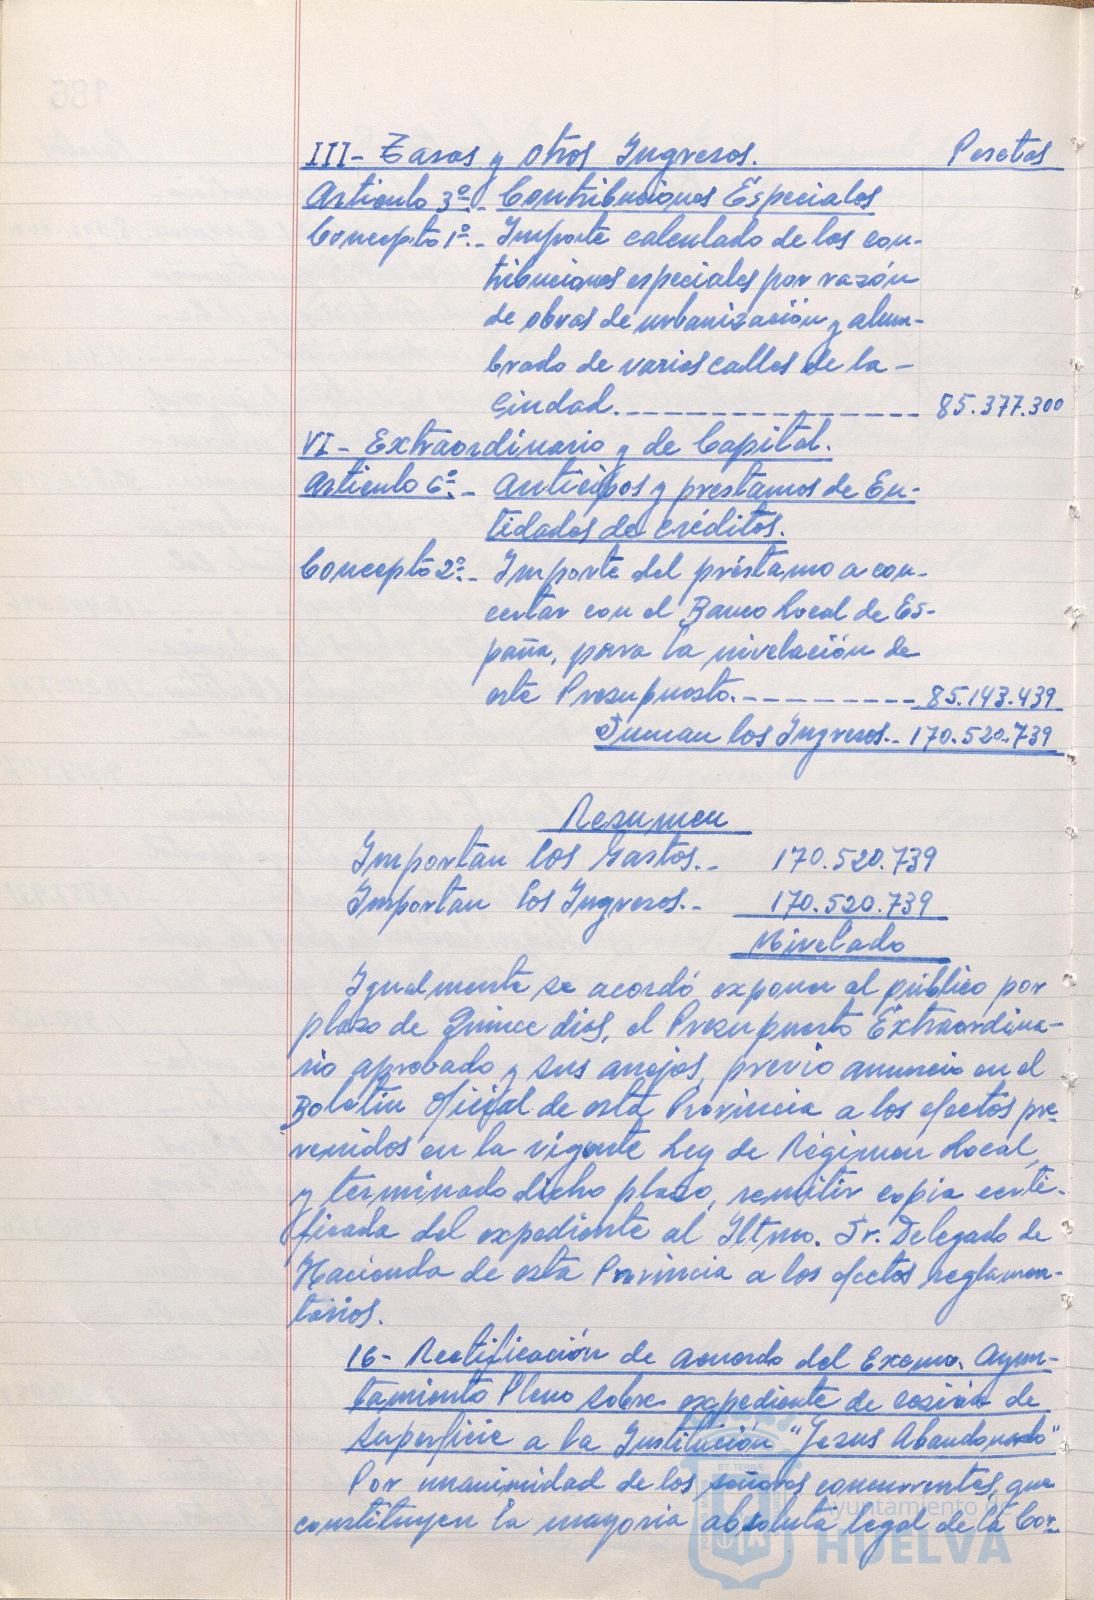 III- Tasas y otros Ingresos. Pesetas
Articulo 3º.- Contribuciones Especiales
Concepto 1º.- Importe calculado de las con-
tribuciones especiales por razón
de obras de urbanización y alum-
brado de varias calles de la -
Ciudad.______________ 85.377.300
VI- Extraordinario y de Capital.
Articulo 6º.- Anticipos y prestamos de En-
tidades de créditos.
Concepto 2º.- Importe del préstamo a con-
certar con el Banco Local de Es-
paña, para la nivelación de
este Presupuesto.________ 85.143.439
Suman los Ingresos.- 170.520.739
Resumen
Importan los Gastos.- 170.520.739
Importan los Ingresos.- 170.520.739
Nivelado
Igualmente se acordó exponer al público por
plazo de quince dias, el Presupuesto Extraordina-
rio aprobado y sus anejos, previo anuncio en el
Boletin Oficial de esta Provincia a los efectos pre-
venidos en la vigente Ley de Régimen Local,
y terminado dicho plazo, remitir copia certi-
ficada del expediente al Iltmo. Sr. Delegado de
Hacienda de esta Provincia a los efectos reglamen-
tarios.
16- Rectificación de acuerdo del Excmo. Ayun-
tamiento Pleno sobre expediente de cesión de
superficie a la Institución "Jesus Abandonado"
Por unanimidad de los señores concurrentes, que
constituyen la mayoria absoluta legal de la Cor-
Ayuntamiento de
HUELVA